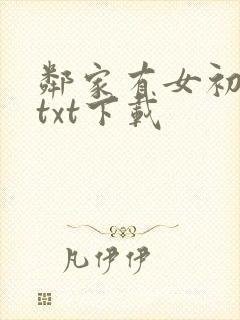 鄰家有女初
txt下載
凡伊伊